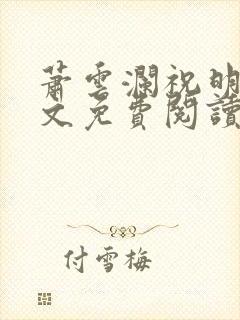 蕭雲瀾祝明
文免費閱讀
付雪梅